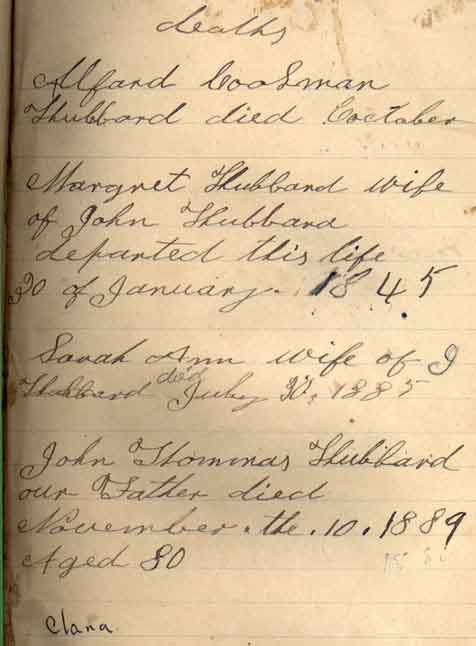 deaths
Alfard Cooksman
Hubbard died Ooctober
Margret Hubbard wife
of John Hubbard
departed this life
20 of January. 1845
Sarah Ann wife of J
Hubbard died July 30, 1885
John Thommas Hubbard
our Father died
November. the. 10. 1889
Aged 80
Clana.